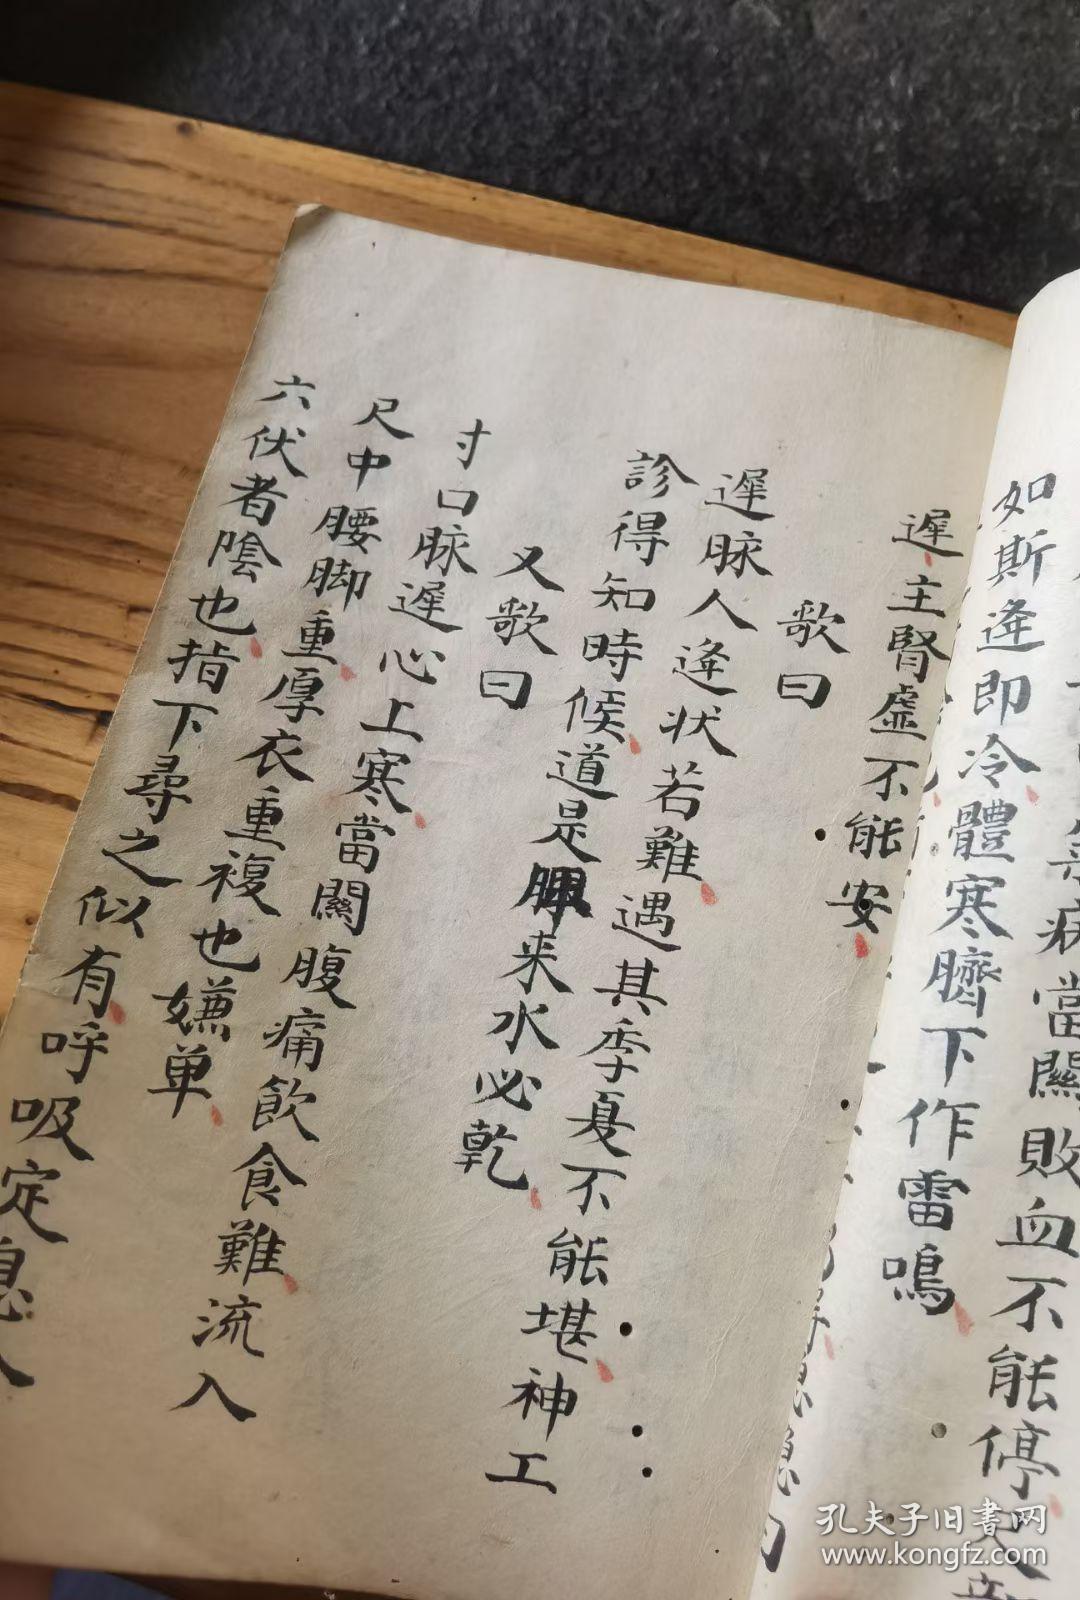 如斯逢即冷體寒臍下作雷鳴
當關敗血不能停尺
遲主腎虛不能安
歌曰
遲脉人逢状若難遇其季夏不能堪神工
診得知時候道是脾来水必乾
又歌曰
寸口脉遲心上寒當關腹痛飲食難流入
尺中腰脚重厚衣重複也嫌单
六伏者陰也指下尋之似有呼吸定息
孔夫子旧书网
www.kongfz.com